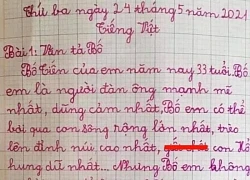 Thứ ba ngày 24 tháng 5 năm 202
Tiếng Việt
Bài 1: Văn tả Bố
Bố Tiến của em năm nay 33 tuổi. Bố
em là người đàn ông mạnh mẽ
nhất, dũng cảm nhất. Bố em có thể
bơi qua con sông rộng lớn nhất, trèo
lên đỉnh núi cao nhất, con
hung dữ nhất... Nhưng Bố em không